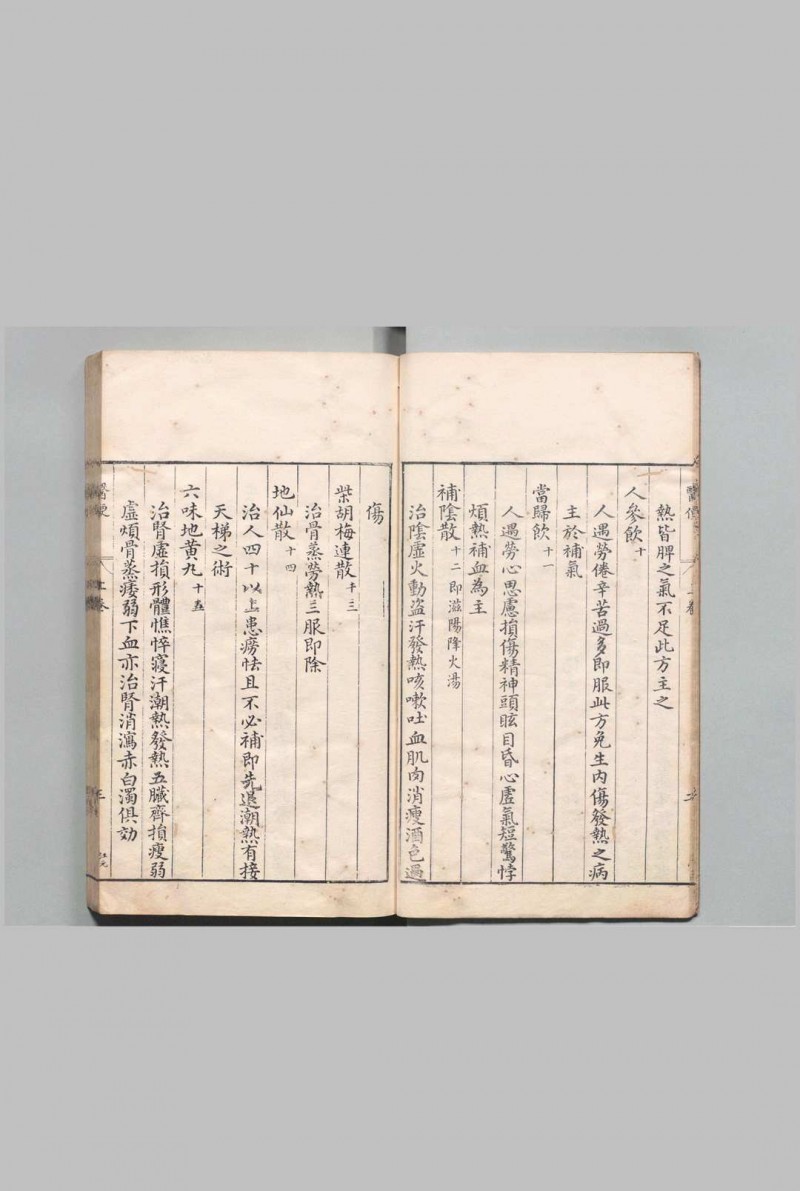 熱皆脾之氣不足此方主之
人參飲十
人遇勞倦辛苦過多即服此方免生內傷發熱之病
主於補氣
當歸飲十一
人遇勞心思慮損傷精神頭眩目昏心虛氣短驚悸
煩熱補血為主
補陰散十二即滋陽降火湯
治陰虛火動盜汗發熱咳嗽吐血肌肉消瘦酒色過
傷
柴胡梅連散十三
治骨蒸勞熱三服即除
地仙散十四
治人四十以上患癆怯且不必補即先退潮熱有接
天梯之術
六味地黄丸十五
治腎虛損形體憔悴寢汗潮熱發熱五臟齊損瘦弱
虛煩骨蒸痿弱下血亦治腎消瀉赤白濁俱効
醫便
上卷